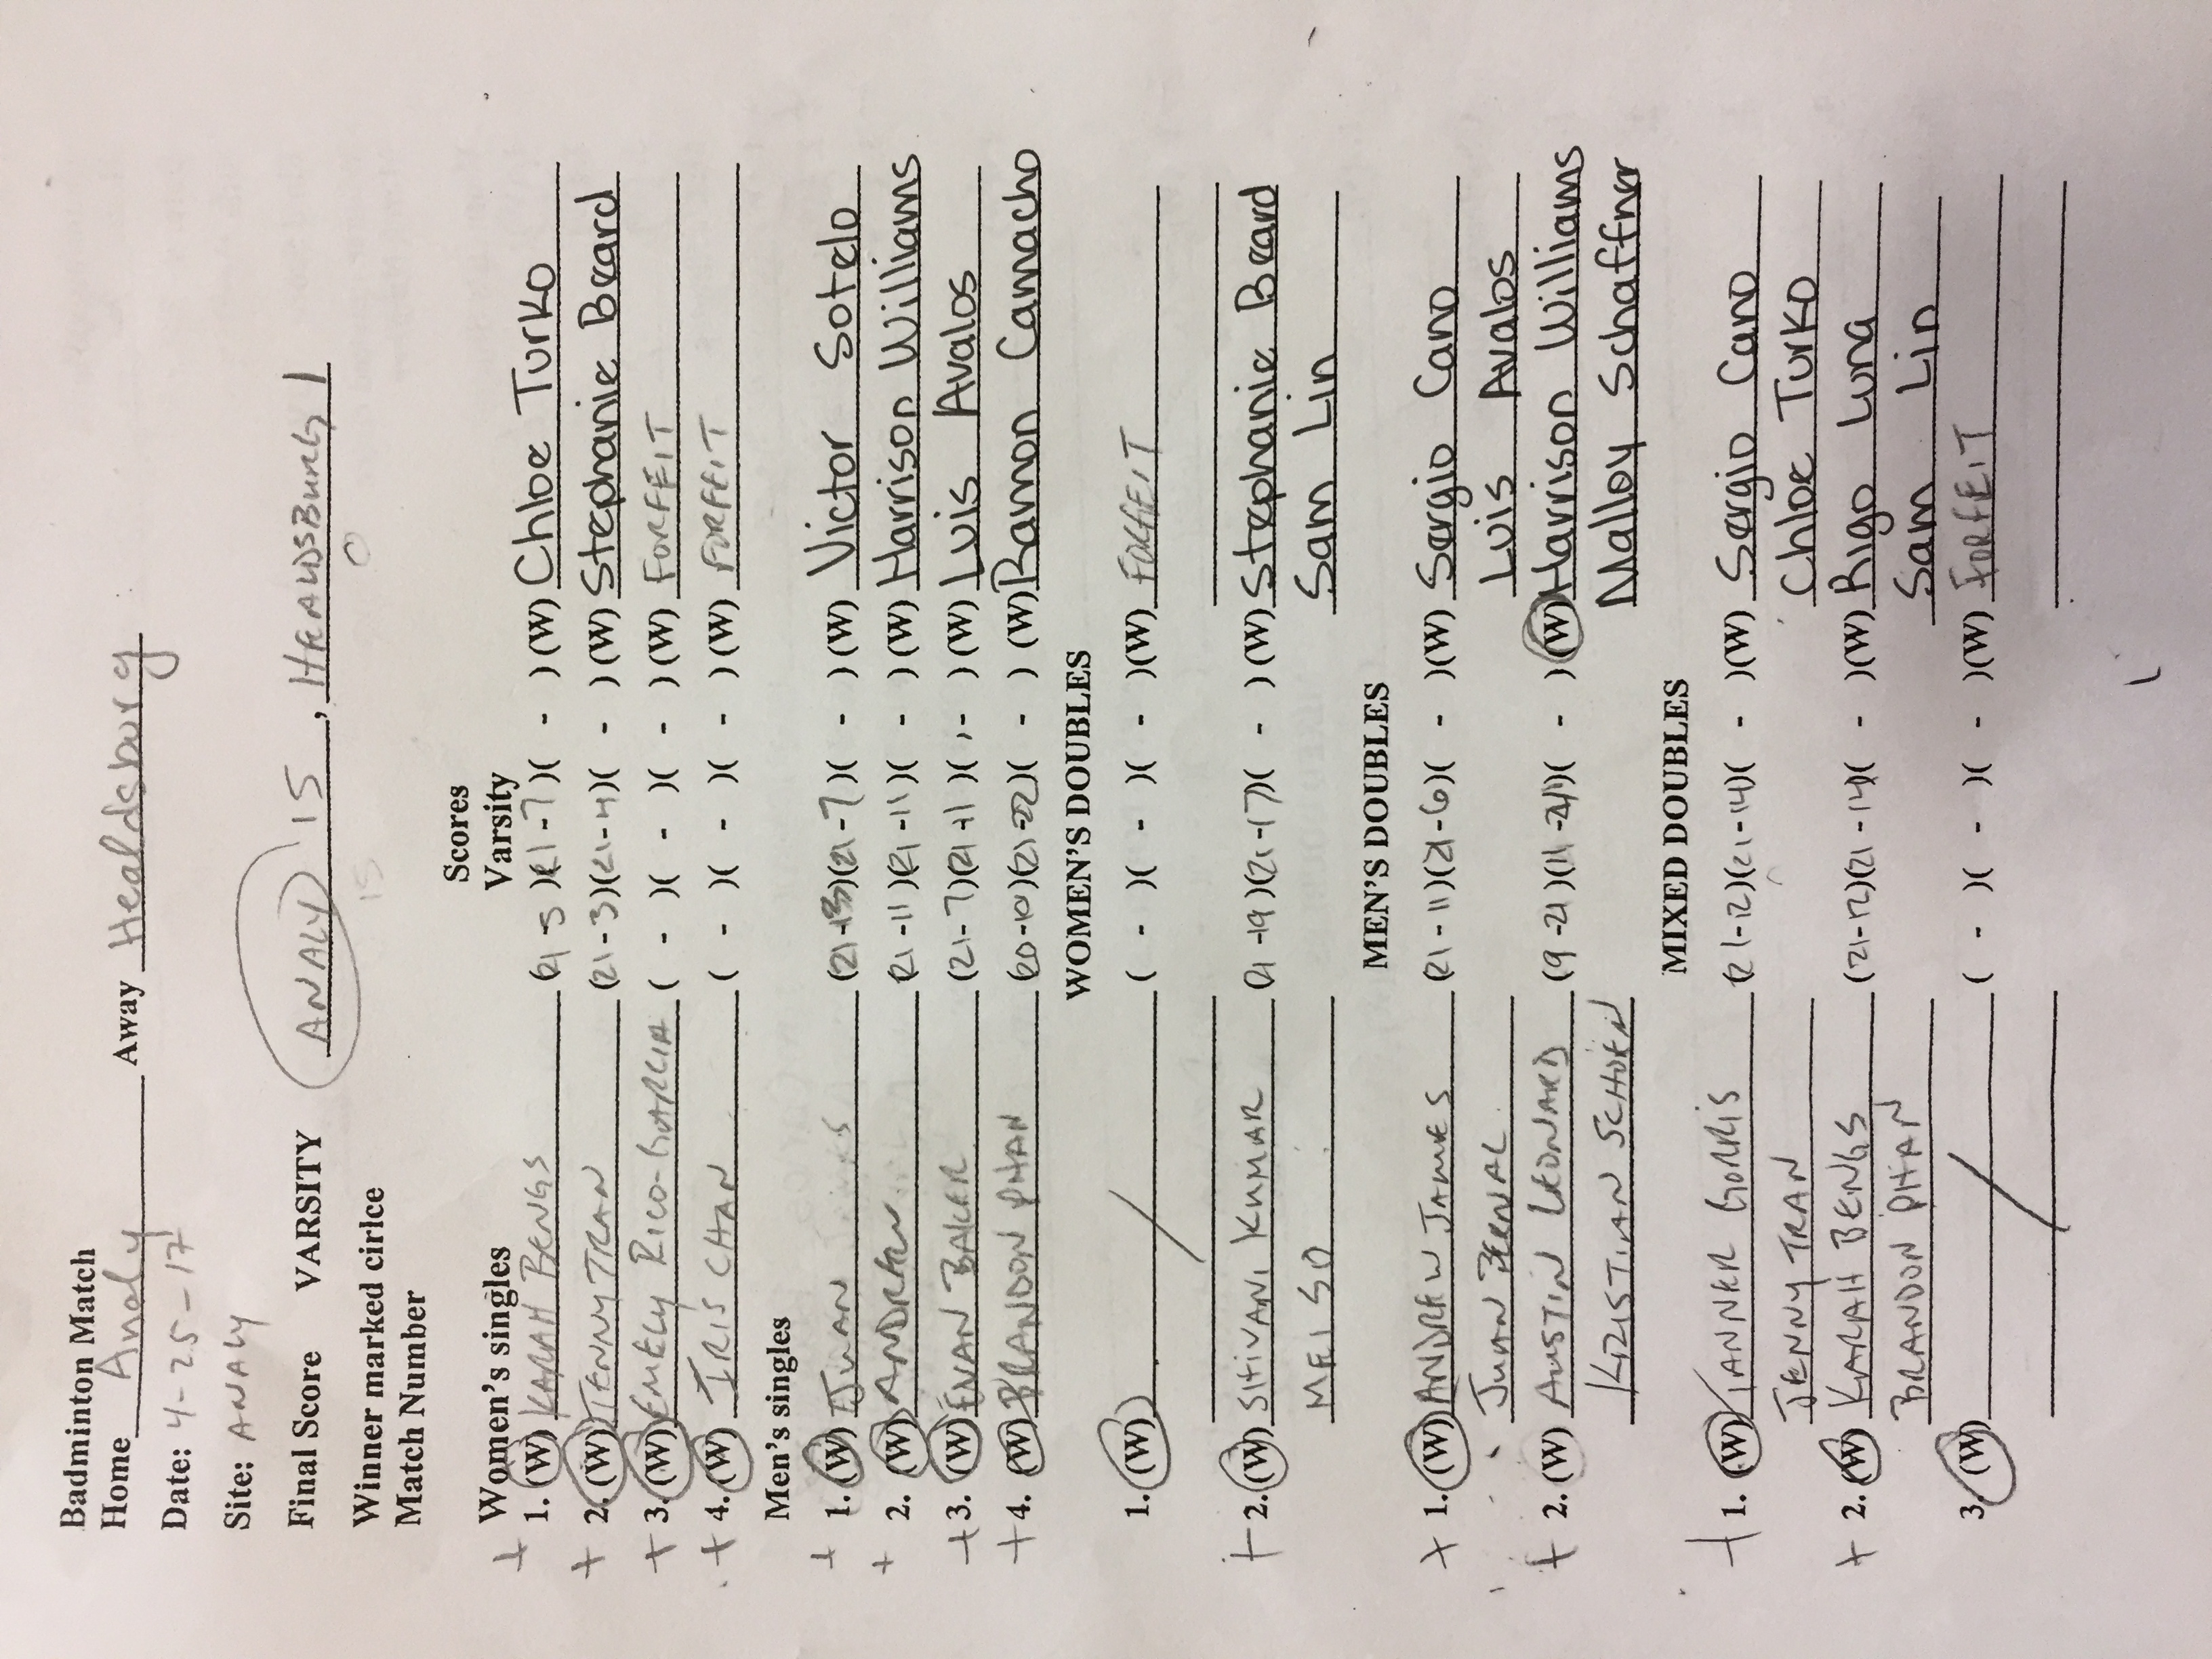 Badminton Match
Home Analy Away Healdsburg
Date: 4-25-17
Site: ANALY
Final Score VARSITY ANALY 15, HEALDSBURG 1
15 0
Winner marked cirlce
Match Number
Scores
Women's singles Varsity
+ 1. (W) KARAH BENGS (21-5)(21-7)( - ) (W) Chloe Turko
+ 2. (W) JENNY TRAN (21-3)(21-4)( - ) (W) Stephanie Beard
+ 3. (W) EMELY RICO-GARCIA ( - )( - )( - ) (W) FORFEIT
+ 4. (W) IRIS CHAN ( - )( - )( - ) (W) FORFEIT
Men's singles
+ 1. (W) (21-13)(21-7)( - ) (W) Victor Sotelo
+ 2. (W) ANDREW (21-11)(21-11)( - ) (W) Harrison Williams
+ 3. (W) EVAN BAKER (21-7)(21-11)( - ) (W) Luis Avalos
+ 4. (W) BRANDON PHAN (20-10)(21-22)( - ) (W) Ramon Camacho
WOMEN'S DOUBLES
1. (W) ( - )( - )( - )(W) FORFEIT
+ 2. (W) SHIVANI KUMAR (21-19)(21-17)( - ) (W) Stephanie Beard
MEI SO Sam Lin
MEN'S DOUBLES
+ 1. (W) ANDREW JAMES (21-11)(21-6)( - )(W) Sergio Cano
JUAN BERNAL Luis Avalos
+ 2. (W) AUSTIN LEONARD (9-21)(11-21)( - )(W) Harrison Williams
KRISTIAN SCHOEN Malloy Schaffner
MIXED DOUBLES
+ 1. (W) TANNER GORRIS (21-12)(21-14)( - )(W) Sergio Cano
JENNY TRAN Chloe Turko
+ 2. (W) KARAH BENGS (21-12)(21-14)( - )(W) Rigo Luna
BRANDON PHAN Sam Lin
3. (W) ( - )( - )( - )(W) FORFEIT